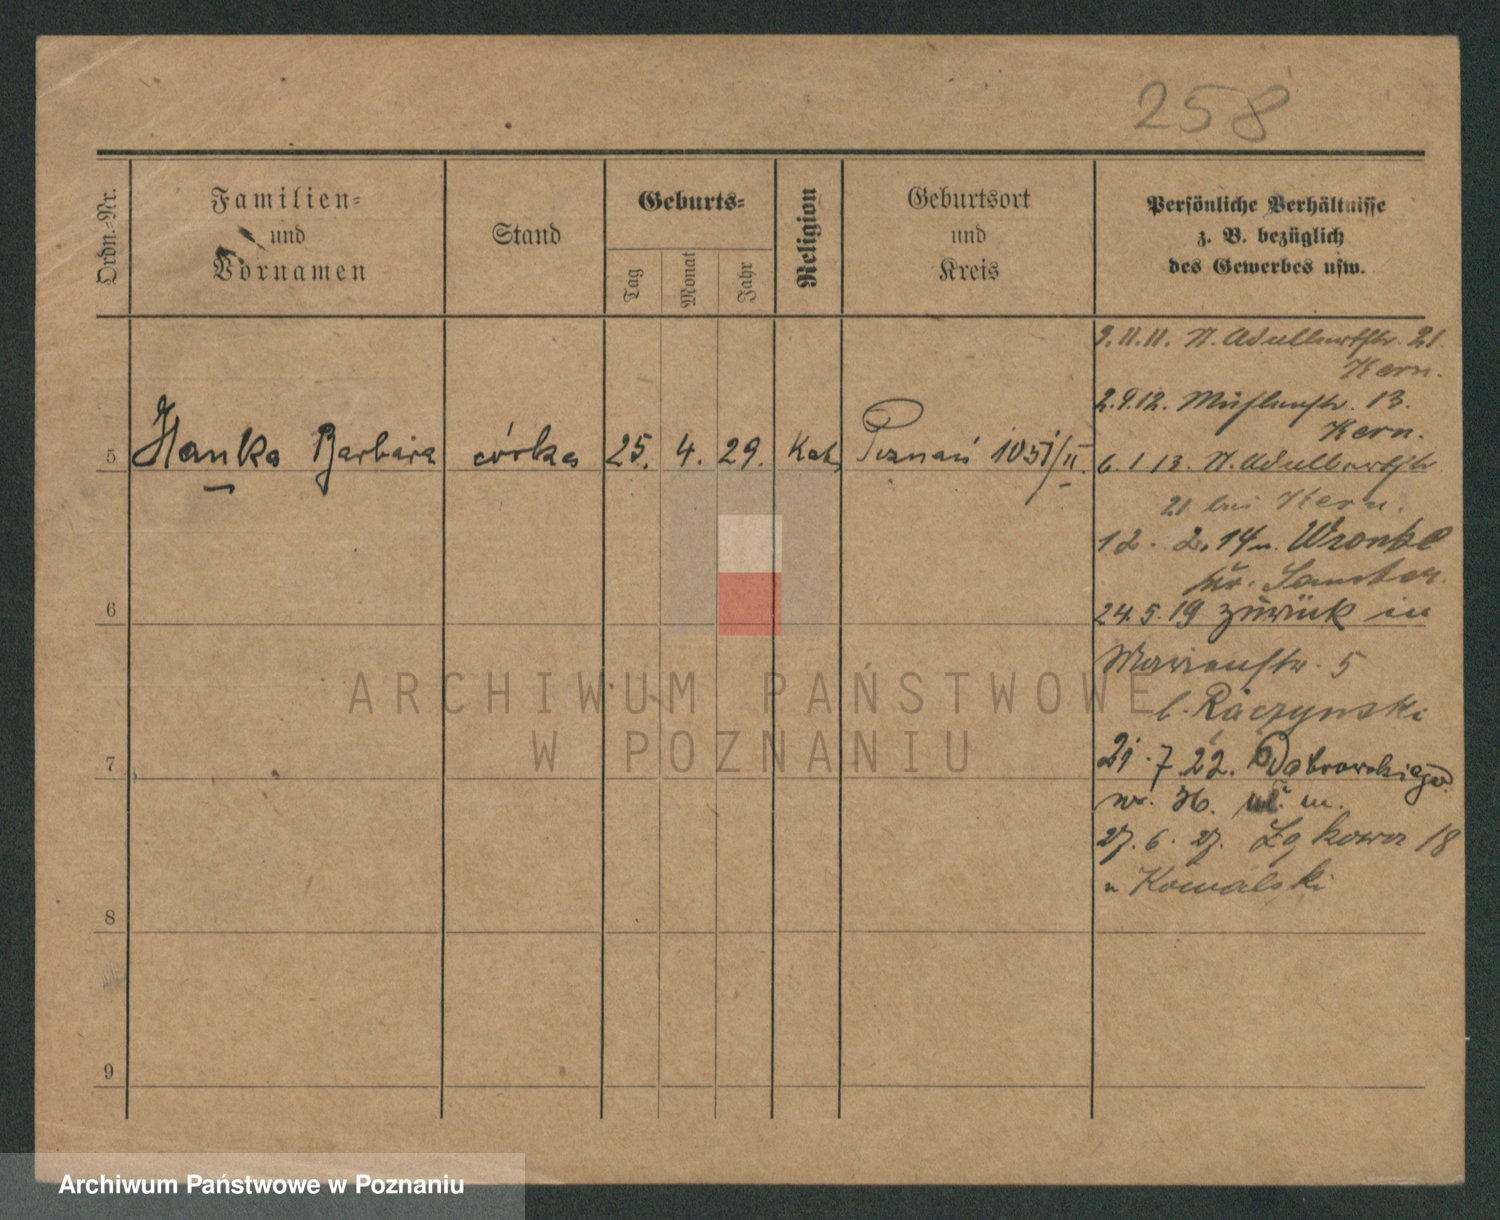 258
Ordn.-Nr.
Familien-
und
Vornamen
Stand
Geburts-
Tag
Monat
Jahr
Religion
Geburtsort
und
Kreis
Persönliche Verhältnisse
z. B. bezüglich
des Gewerbes usw.
5 Hanka Barbara córka 25. 4. 29. Kat. Poznań 1051/II.
9.11.11. N. Adalbertstr. 21.
Kern.
2.9.12. 13.
Kern.
6.1.13. N. Adalbertstr
21 bei Kern.
12. 2. 14 n. Wronke
Kr. Samter.
24.5.19 zurück in
Marienstr. 5
b. Raczynski
21.7.22. Dąbrowskiego
nr. 36. m.
27. 6. 27. Łąkowa 18
u Kowalski
6
7
8
9
ARCHIWUM PAŃSTWOWE
W POZNANIU
Archiwum Państwowe w Poznaniu